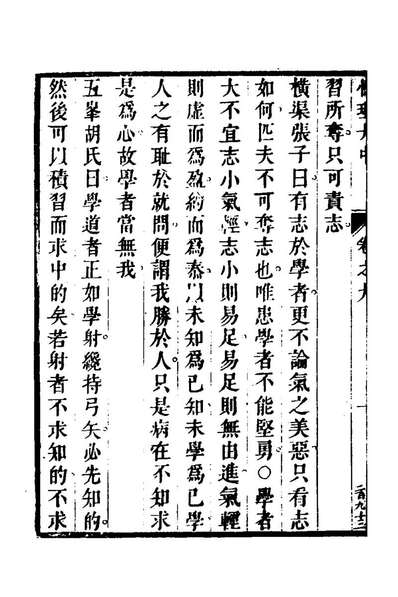 習所奪只可責志
橫渠張子曰有志於學者更不論氣之美惡只看志
如何匹夫不可奪志也唯患學者不能堅勇○學者
大不宜志小氣輕志小則易足易足則無由進氣輕
則虛而爲盈約而爲泰以未知爲已知未學爲已學
人之有耻於就問便謂我勝於人只是病在不知求
是爲心故學者當無我
五峯胡氏曰學道者正如學射纔持弓矢必先知的
然後可以積習而求中的矣若射者不求知的不求